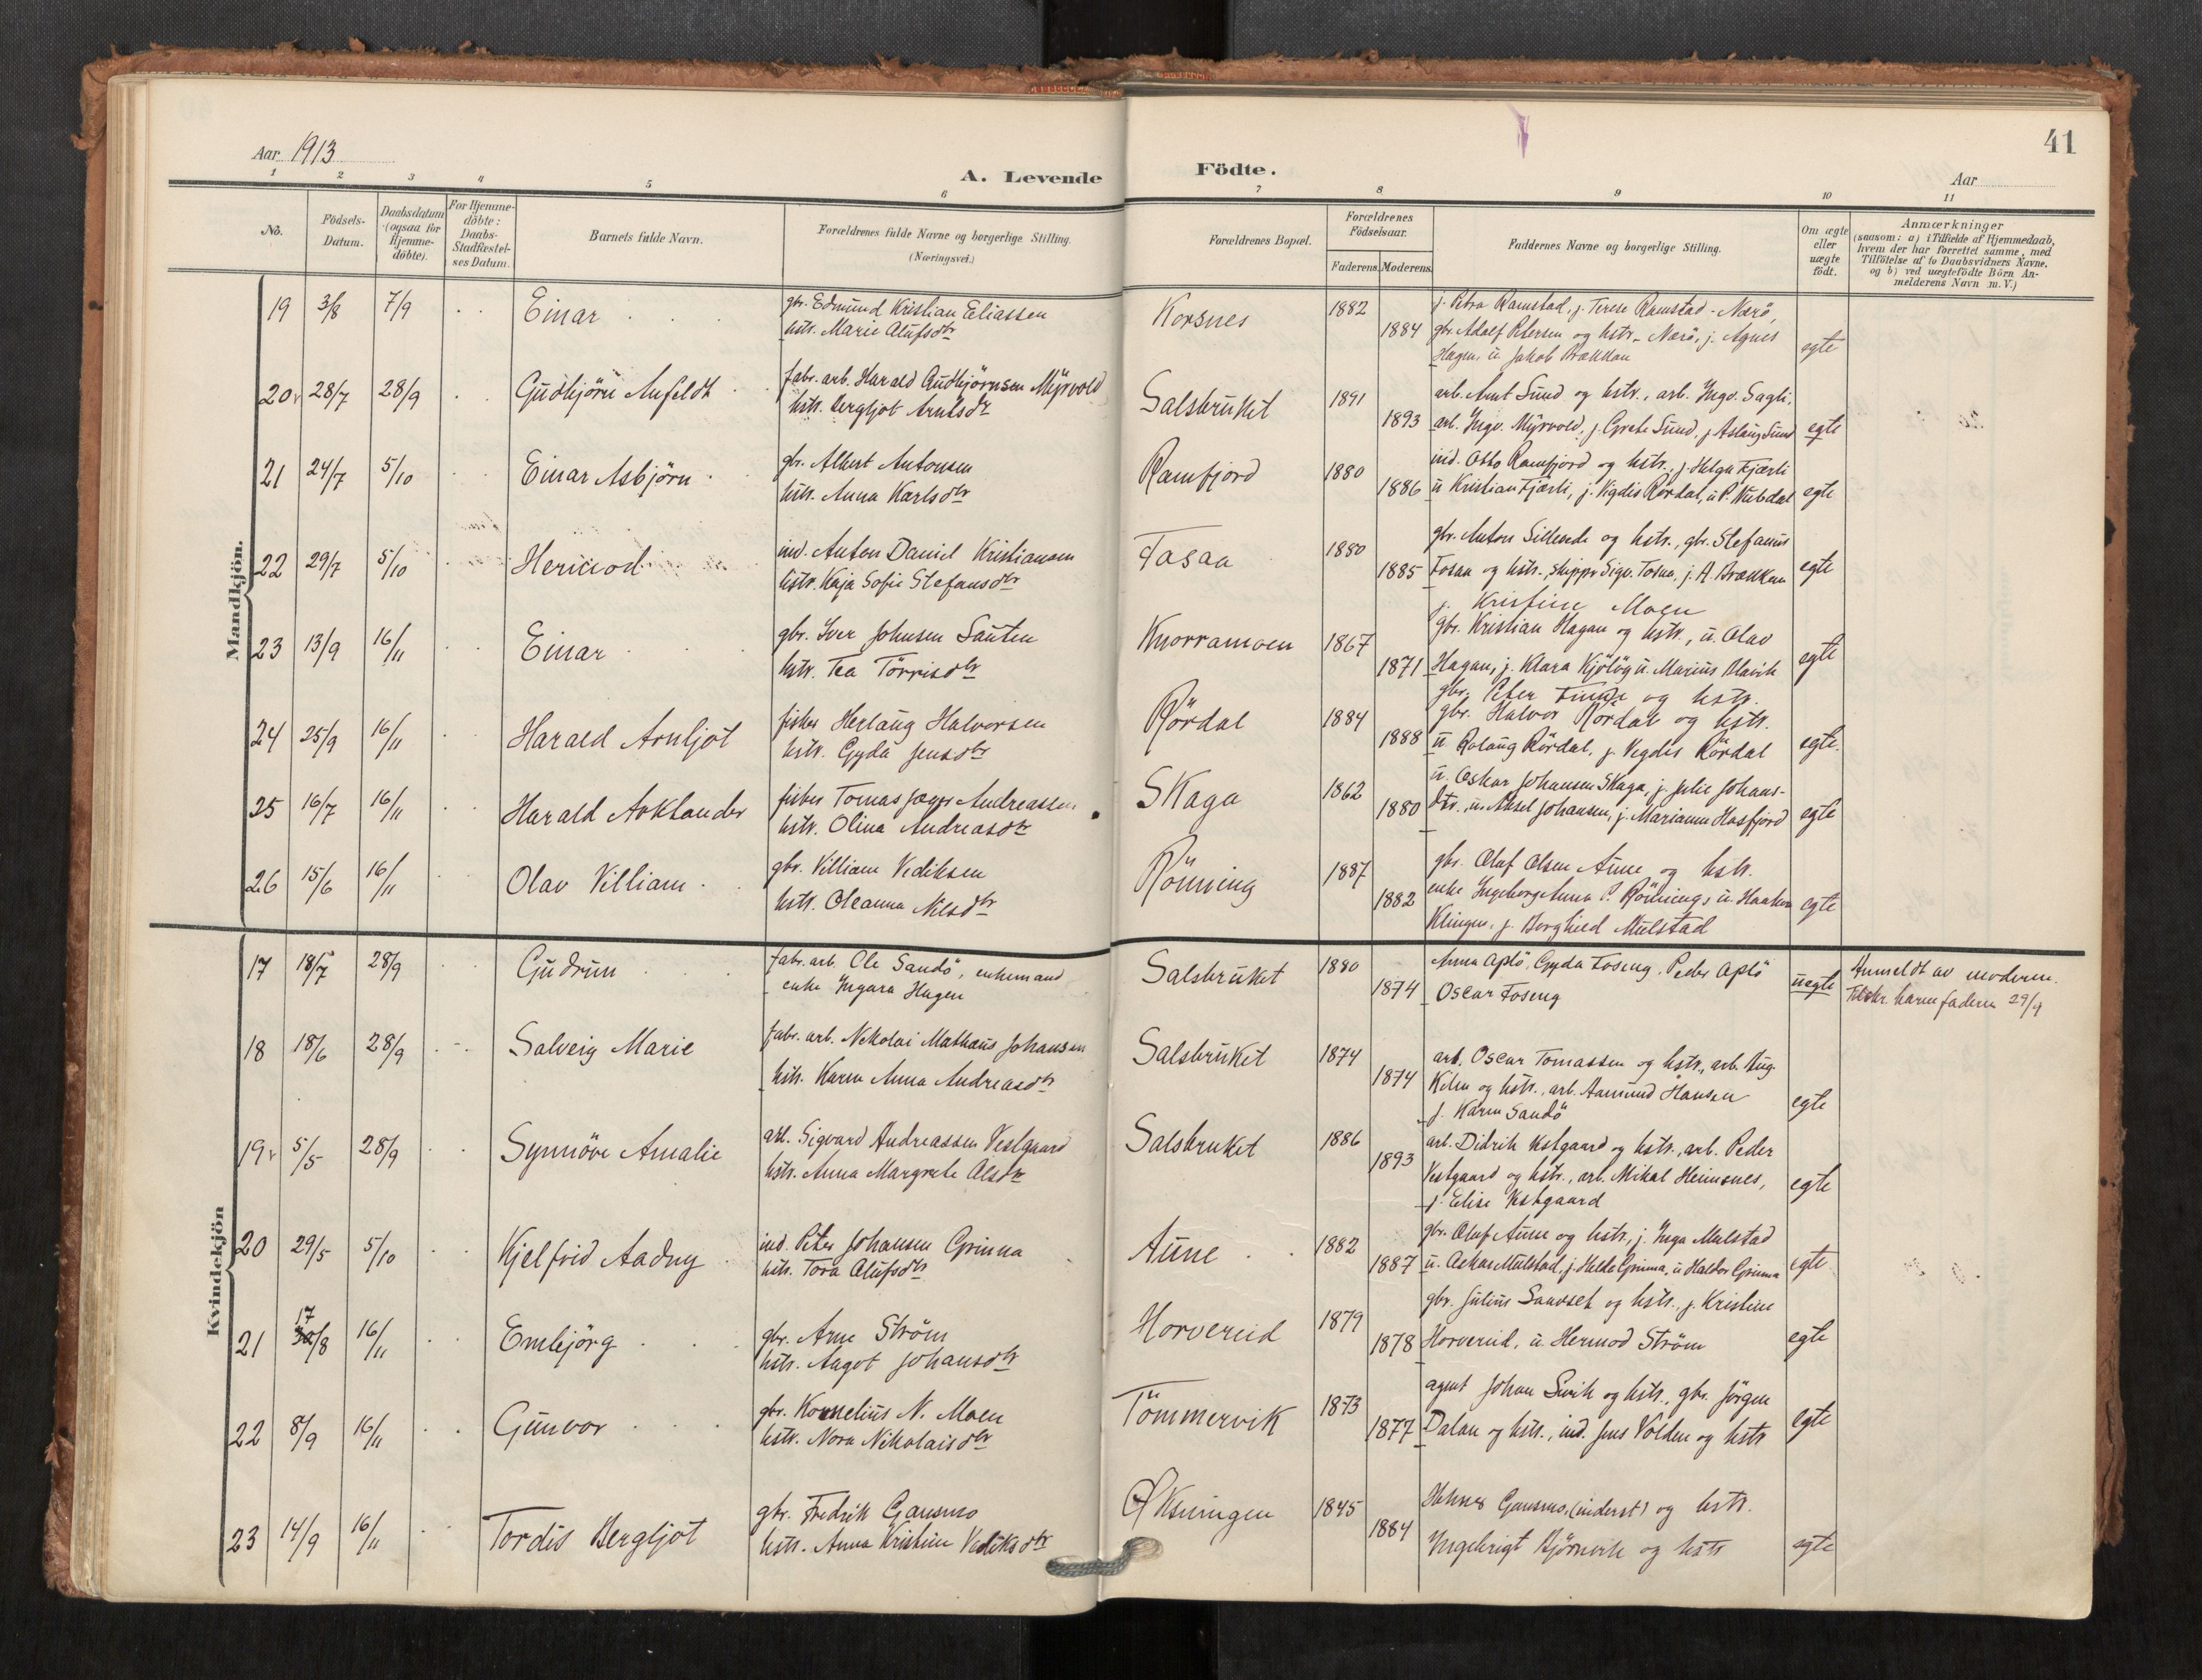 41
Aar 1913
A. Levende Födte.
Aar
1 2 3 4 5 6 7 8 9 10 11
No.
Födsels-
Datum.
Daabsdatum
(ogsaa for
Hjemme-
döbte).
For Hjemme-
döbte:
Daabs-
Stadfæstel-
ses Datum.
Barnets fulde Navn.
Forældrenes fulde Navne og borgerlige Stilling.
(Næringsvei.)
Forældrenes Bopæl.
Forældrenes
Födselsaar.
Faderens. Moderens.
Faddernes Navne og borgerlige Stilling.
Om ægte
eller
uægte
födt.
Anmærkninger
(saasom: a) i Tilfælde af Hjemmedaab,
hvem der har forrettet samme, med
Tilföielse af to Daabsvidners Navne.
og b) ved uægtefödte Börn An-
melderens Navn m. V.)
Mandkjön.
19 3/8 7/9 Einar
gbr. Edmund Kristian Eliassen
hstr. Marie Alufsdtr
Korsnes 1882
1884
j. Petra Ramstad, j. Terese Ramstad - Nærö,
gbr. Adolf Petersen og hstr. - Nærö, j. Agnes
Hagen, u. Jakob Brækkan
egte
20 28/7 28/9 Gudbjörn Aufeldt
fabr. arb. Harald Gudbjörnsen Myrvold
hstr. Bergljot Arntsdtr
Salsbruket 1891
1893
arb. Arnt Sund og hstr., arb. Ingv. Sagli,
arb. Ingv. Myrvold, j. Grete Sund, j Aslaug Sund
egte
21 24/7 5/10 Einar Asbjörn
gbr. Albert Antonsen
hstr. Anna Karlsdtr
Ramfjord 1880
1886
ind. Otto Ramfjord og hstr., j. Helga Fjærli
u Kristian Fjærli, j. Vigdis Rördal, u P. Nubdal
egte
22 29/7 5/10
ind. Anton Daniel Kristiansen
hstr. Kaja Sofie Stefansdtr
Fosaa 1880
1885
gbr. Anton Sillende og hstr., gbr. Stefanus
Fosaa og hstr., skippr Sigv. Fosaa, j. A. Brækkan
j. Kristine Moen
egte
23 13/9 16/11 Einar
gbr. Iver Johnsen Sauten
hstr. Tea Törrisdtr
Knorramoen 1867
1871
gbr. Kristian Hagan og hstr., u. Olav
Hagan, j. Klara Kjölög u. Marius Blavik
gbr. Peter Finne og hstr.
egte
24 25/9 16/11 Harald Arnljot
fisker Herlaug Halvorsen
hstr. Gyda Jensdtr
Rördal 1884
1888
gbr. Halvor Rördal og hstr.
u Rolaug Rördal, j. Vegdis Rördal
egte.
25 16/7 16/11 Harald Arklander
fisker Tomas Jæger Andreassen
hstr. Olina Andreasdtr
Skaga 1862
1880
u. Oskar Johansen Skaga, j. Julie Johans-
dtr., u. Aksel Johansen, j. Marianne Hasfjord
egte
26 15/6 16/11 Olav Villiam
gbr. Villiam Vediksen
hstr. Oleanna Nilsdtr
Rönning 1887
1882
gbr. Oluf Olsen Aune og hstr.
enke Ingeborg Anna P. Rönnings u. Haakon
Klingen, j. Borghild Mulstad
egte
Kvindekjön
17 18/7 28/9 Gudrun
fabr. arb. Ole Sandö, enkemand
enke Ingara Hagen
Salsbruket 1880
1874
Anna Aplö, Gyda Foseng, Peder Aplö
Oscar Foseng
uegte
Anmeldt av moderen.
Tilskr. barnefaderen 29/9
18 18/6 28/9 Salveig Marie
fabr. arb. Nikolai Mathæus Johansen
hstr. Karen Anna Andreasdtr
Salsbruket 1874
1874
arb. Oscar Tomassen og hstr., arb. Aug.
Kilen og hstr., arb. Aamund Hansen
j. Karen Sandö
egte
19 5/5 28/9 Synnöve Amalie
arb. Sigvard Andreassen Vestgaard
hstr. Anna Margrete Olsdtr
Salsbruket 1886
1893
arb. Didrik Vestgaard og hstr., arb. Peder
Vestgaard og hstr., arb. Mikal Heimsnes,
j. Elise Vestgaard
egte
20 29/5 5/10 Kjelfrid Aadny
ind. Peter Johansen Grinna
hstr. Tora Olufsdtr
Aune 1882
1887
gbr. Oluf Aune og hstr, j. Inga Mulstad
u. Oskar Mulstad, j. Helde Grinna, u Haldor Grinna
egte
21 17/8 16/11 Embjörg
gbr. Arne Ström
hstr. Aagot Johansdtr
Horvereid 1879
1878
gbr. Julius Saurset og hstr., j. Kristine
Horvereid, u. Hermod Ström
egte
22 8/9 16/11 Gunvor
gbr. Kornelius N. Moen
hstr. Nora Nikolaisdtr
Tömmervik 1873
1877
agent Johan Survik og hstr., gbr. Jörgen
Dalan og hstr., ind. Jens Volden og hstr
egte
23 14/9 16/11 Tordis Bergljot
gbr. Fredrik Gansmo
hstr. Anna Kristine Vediksdtr
Øksningen 1845
1884
Gansmo, (inderst) og hstr.
Ingebrigt Björnvik og hstr
egte